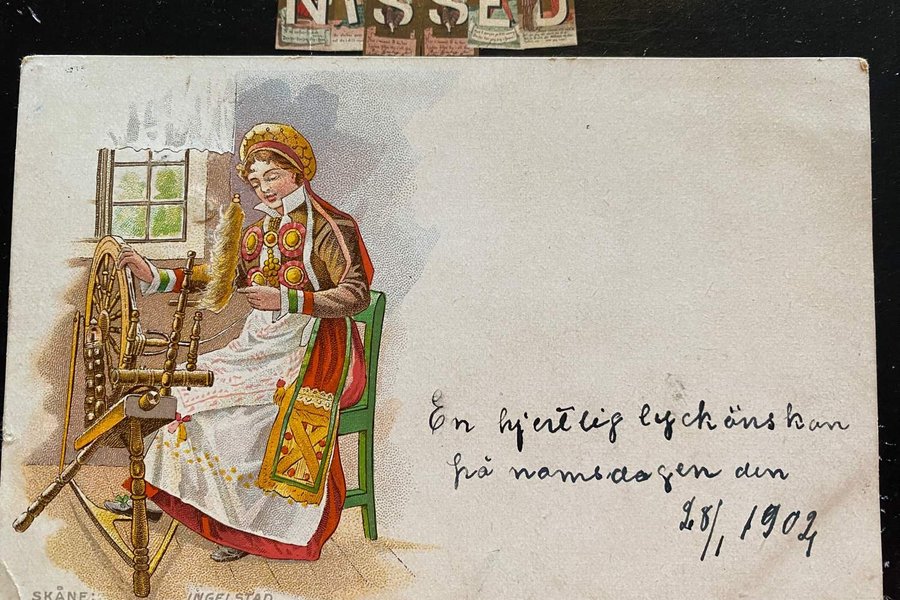 NISSED
En hjertlig lyckönskan
på namsdagen den
28/1 1902
SKÅNE: INGELSTAD